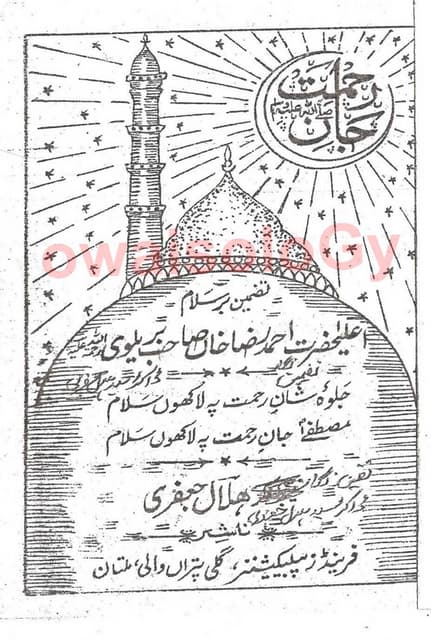 جانِ رحمت
صلی اللہ علیہ وسلم
owaisoloGy
تضمین بر سلام
اعلیٰحضرت احمد رضا خان صاحب بریلوی رحمۃ اللہ علیہ
جلوۂ شانِ رحمت پہ لاکھوں سلام
مصطفےٰ جانِ رحمت پہ لاکھوں سلام
ھلال جعفری
ناشر
فرینڈز پبلیکیشنز، گلی پتراں والی، ملتان